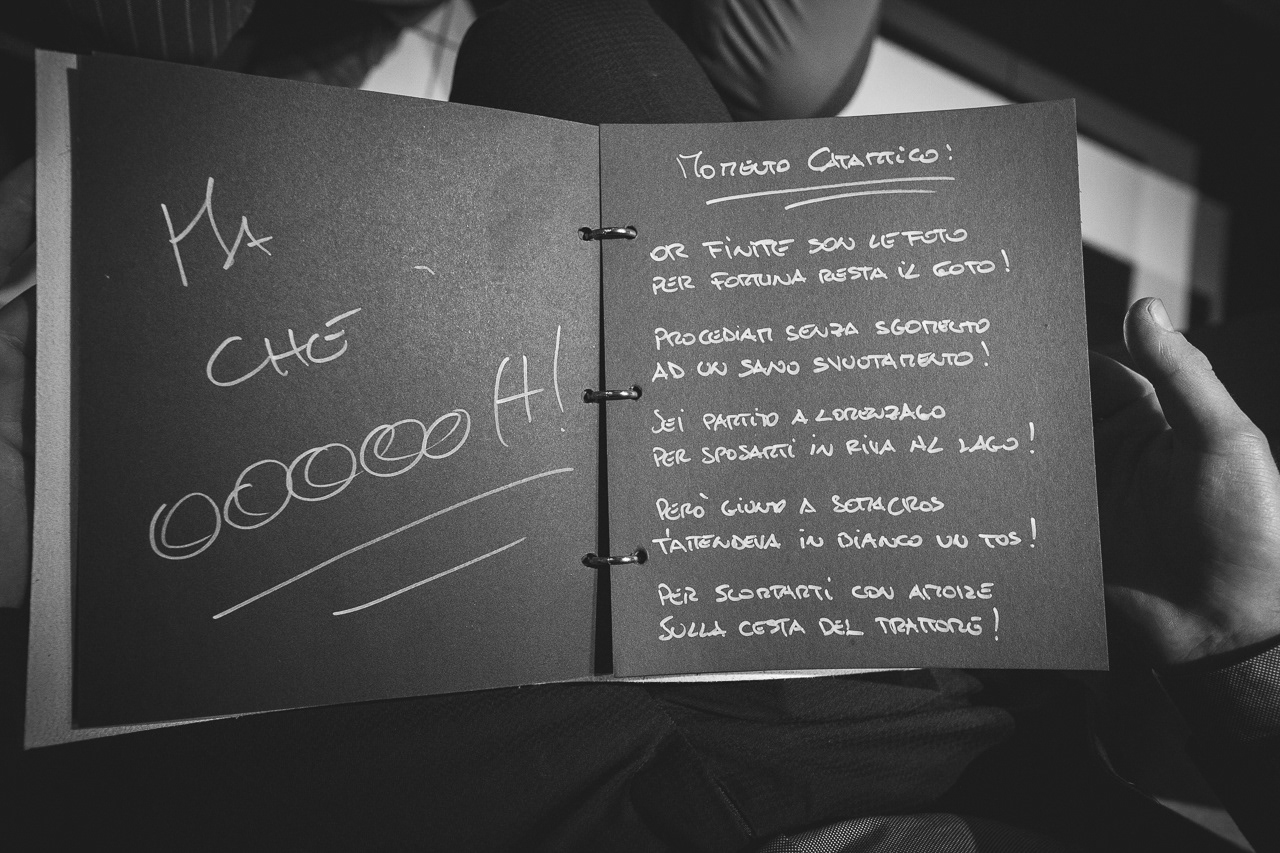 MA
CHE
OOOOOH!
MOMENTO CATARTICO!
OR FINITE SON LE FOTO
PER FORTUNA RESTA IL GOTO!
PROCEDIAM SENZA SGOMENTO
AD UN SANO SVUOTAMENTO!
SEI PARTITO A LORENZAGO
PER SPOSARTI IN RIVA AL LAGO!
PERÒ GIUNTO A SOTACROS
T'ATTENDEVA IN BIANCO UN TOS!
PER SCORTARTI CON AMORE
SULLA CESTA DEL TRATTORE!